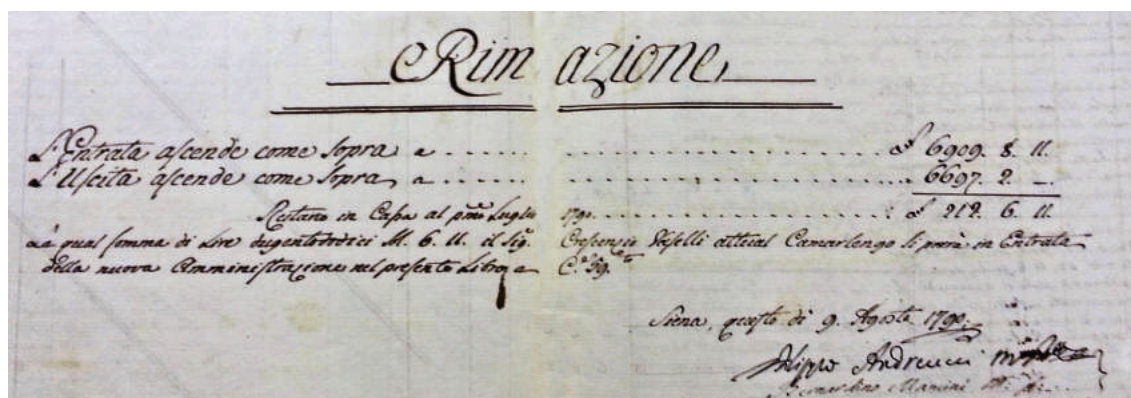 Rimazione
L'Entrata ascende come sopra a ...... £ 6909. 8. 11.
L'Uscita ascende come sopra a ...... 6697. 2. —.
Restano in Cassa al pmo Luglio 1790. ...... £ 212. 6. 11.
La qual somma di Lire dugentododici 6. 11. il Sig. Crescenzio Vaselli attual Camarlengo si porrà in Entrata
della nuova Amministrazione nel presente Libro a C. 59.
Siena, questo dì 9. Agosto 1790.
Filippo Andreucci
Bernardino Mancini